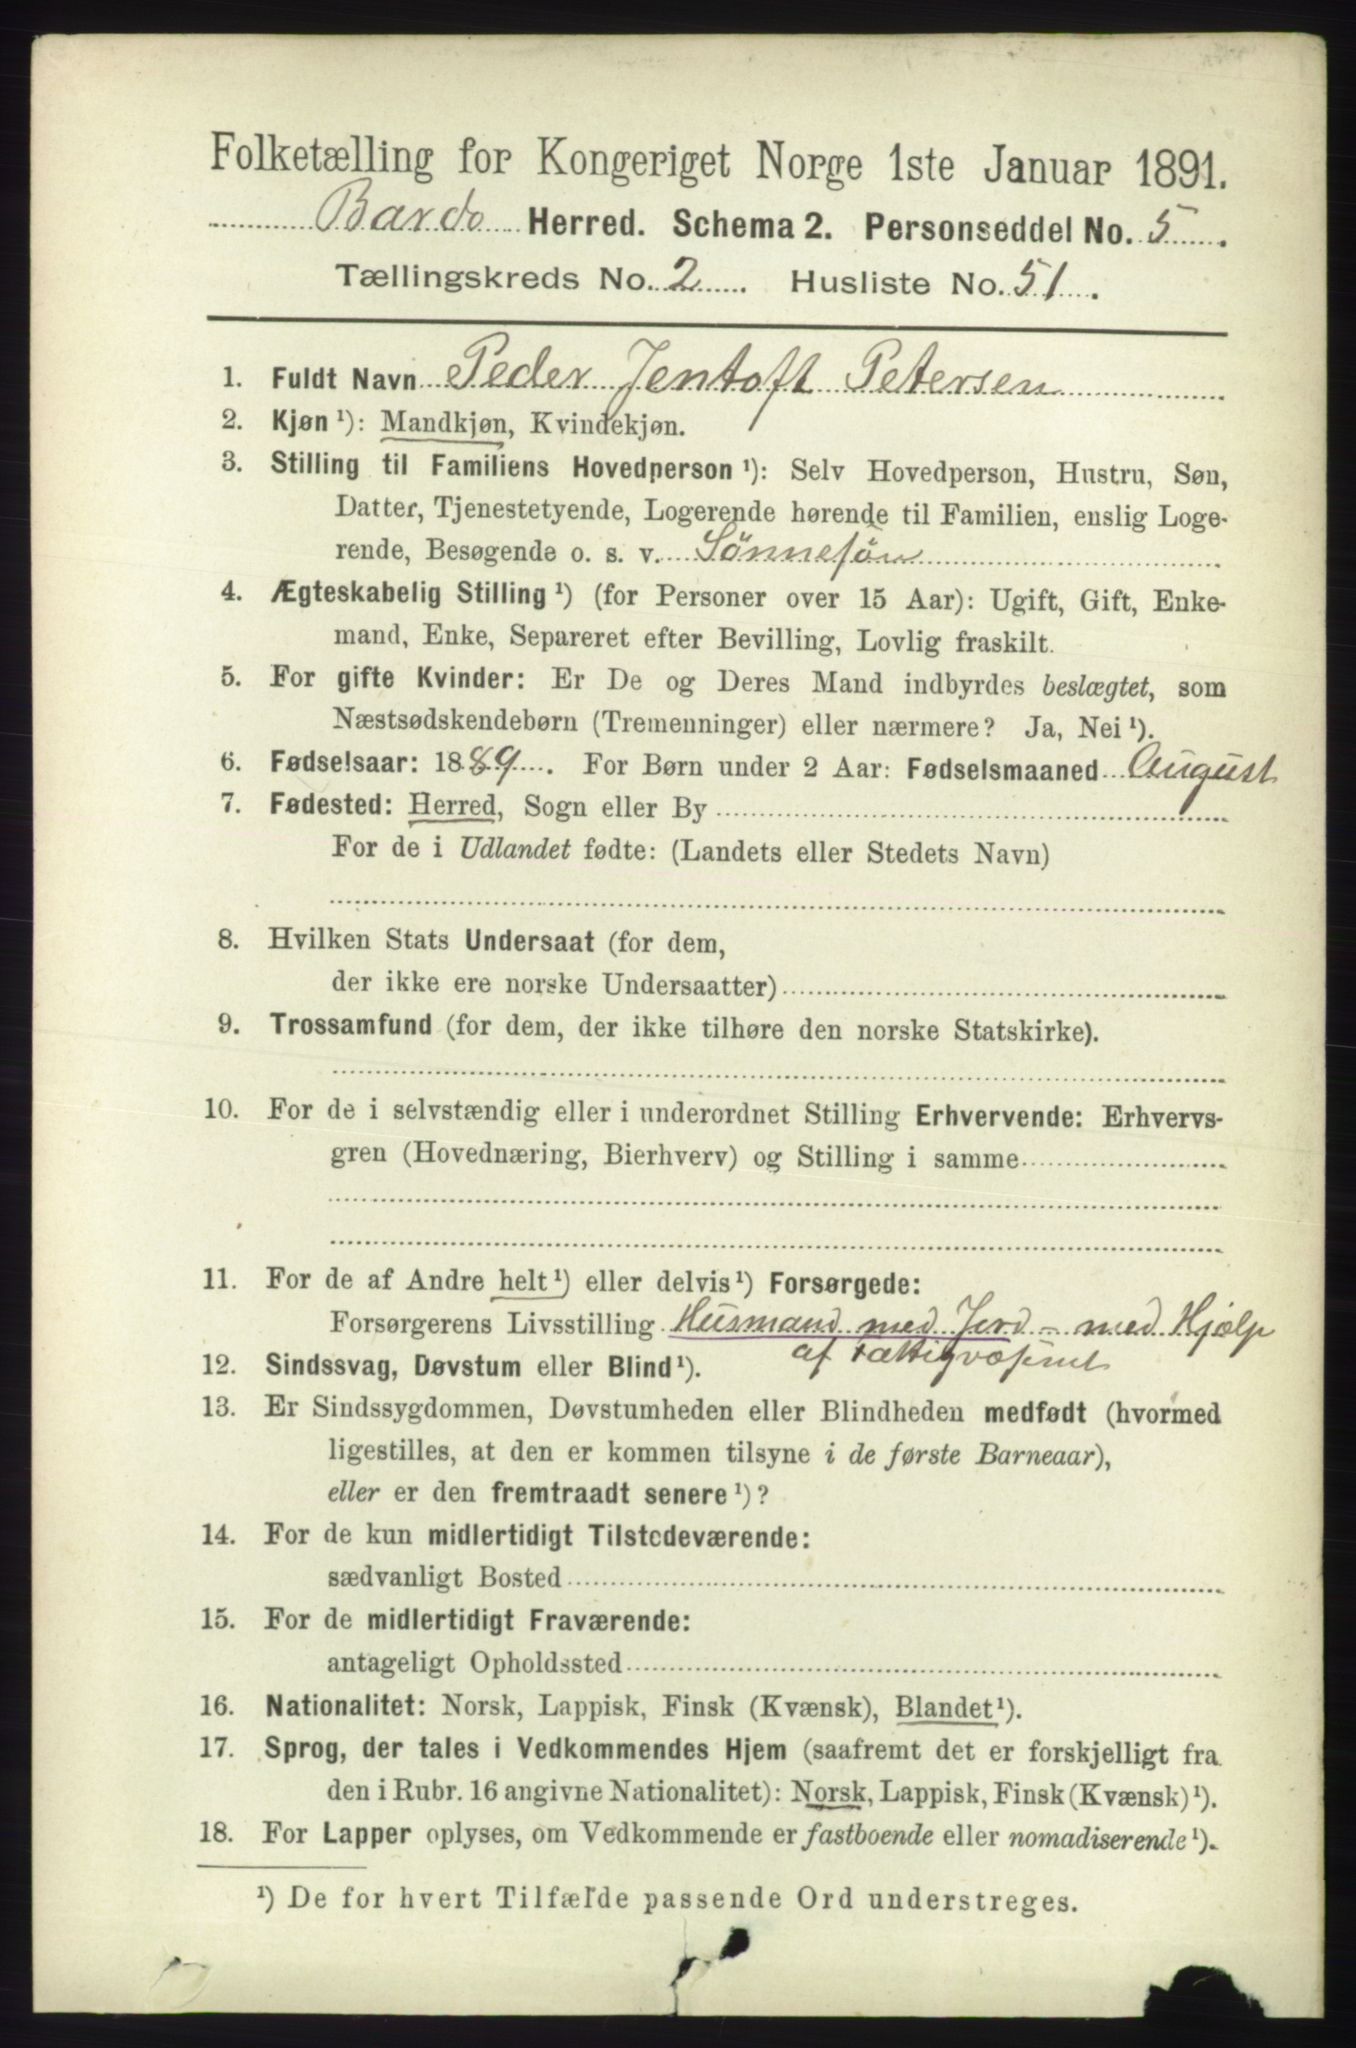 Folketælling for Kongeriget Norge 1ste Januar 1891.
Bardo Herred. Schema 2. Personseddel No. 5
Tællingskreds No. 2. Husliste No. 51.
1. Fuldt Navn Peder Jentoft Petersen
2. Kjøn ¹): Mandkjøn, Kvindekjøn.
3. Stilling til Familiens Hovedperson ¹): Selv Hovedperson, Hustru, Søn,
Datter, Tjenestetyende, Logerende hørende til Familien, enslig Loge-
rende, Besøgende o. s. v. Sønnesøn
4. Ægteskabelig Stilling ¹) (for Personer over 15 Aar): Ugift, Gift, Enke-
mand, Enke, Separeret efter Bevilling, Lovlig fraskilt.
5. For gifte Kvinder: Er De og Deres Mand indbyrdes beslægtet, som
Næstsødskendebørn (Tremenninger) eller nærmere? Ja, Nei ¹).
6. Fødselsaar: 1889. For Børn under 2 Aar: Fødselsmaaned August
7. Fødested: Herred, Sogn eller By
For de i Udlandet fødte: (Landets eller Stedets Navn)
8. Hvilken Stats Undersaat (for dem,
der ikke ere norske Undersaatter)
9. Trossamfund (for dem, der ikke tilhøre den norske Statskirke).
10. For de i selvstændig eller i underordnet Stilling Erhvervende: Erhvervs-
gren (Hovednæring, Bierhverv) og Stilling i samme
11. For de af Andre helt ¹) eller delvis ¹) Forsørgede:
Forsørgerens Livsstilling Husmand med Jord - med Hjælp
af Fattigvæsenet
12. Sindssvag, Døvstum eller Blind ¹).
13. Er Sindssygdommen, Døvstumheden eller Blindheden medfødt (hvormed
ligestilles, at den er kommen tilsyne i de første Barneaar),
eller er den fremtraadt senere ¹)?
14. For de kun midlertidigt Tilstedeværende:
sædvanligt Bosted
15. For de midlertidigt Fraværende:
antageligt Opholdssted
16. Nationalitet: Norsk, Lappisk, Finsk (Kvænsk), Blandet ¹).
17. Sprog, der tales i Vedkommendes Hjem (saafremt det er forskjelligt fra
den i Rubr. 16 angivne Nationalitet): Norsk, Lappisk, Finsk (Kvænsk) ¹).
18. For Lapper oplyses, om Vedkommende er fastboende eller nomadiserende ¹).
¹) De for hvert Tilfælde passende Ord understreges.